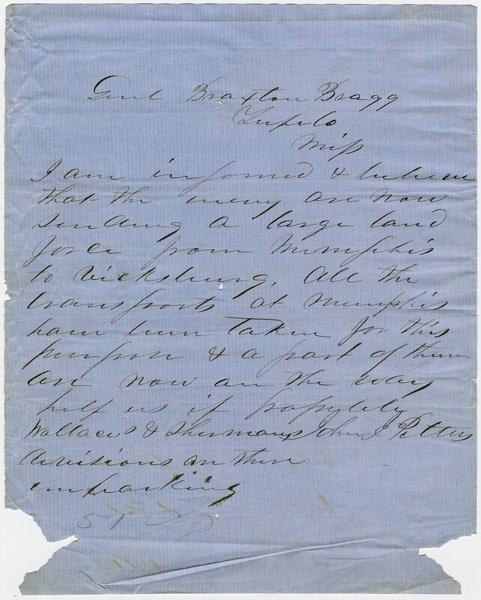 Genl Braxton Bragg
Tupelo
Miss
I am informed & believe
that the enemy are now
sending a large land
force from Memphis
to Vicksburg. All the
transports at Memphis
have been Taken for this
purpose & a part of them
are now on the way
help us if possible
Wallaces & Shermans John J Pettus
divisions are there
embarking